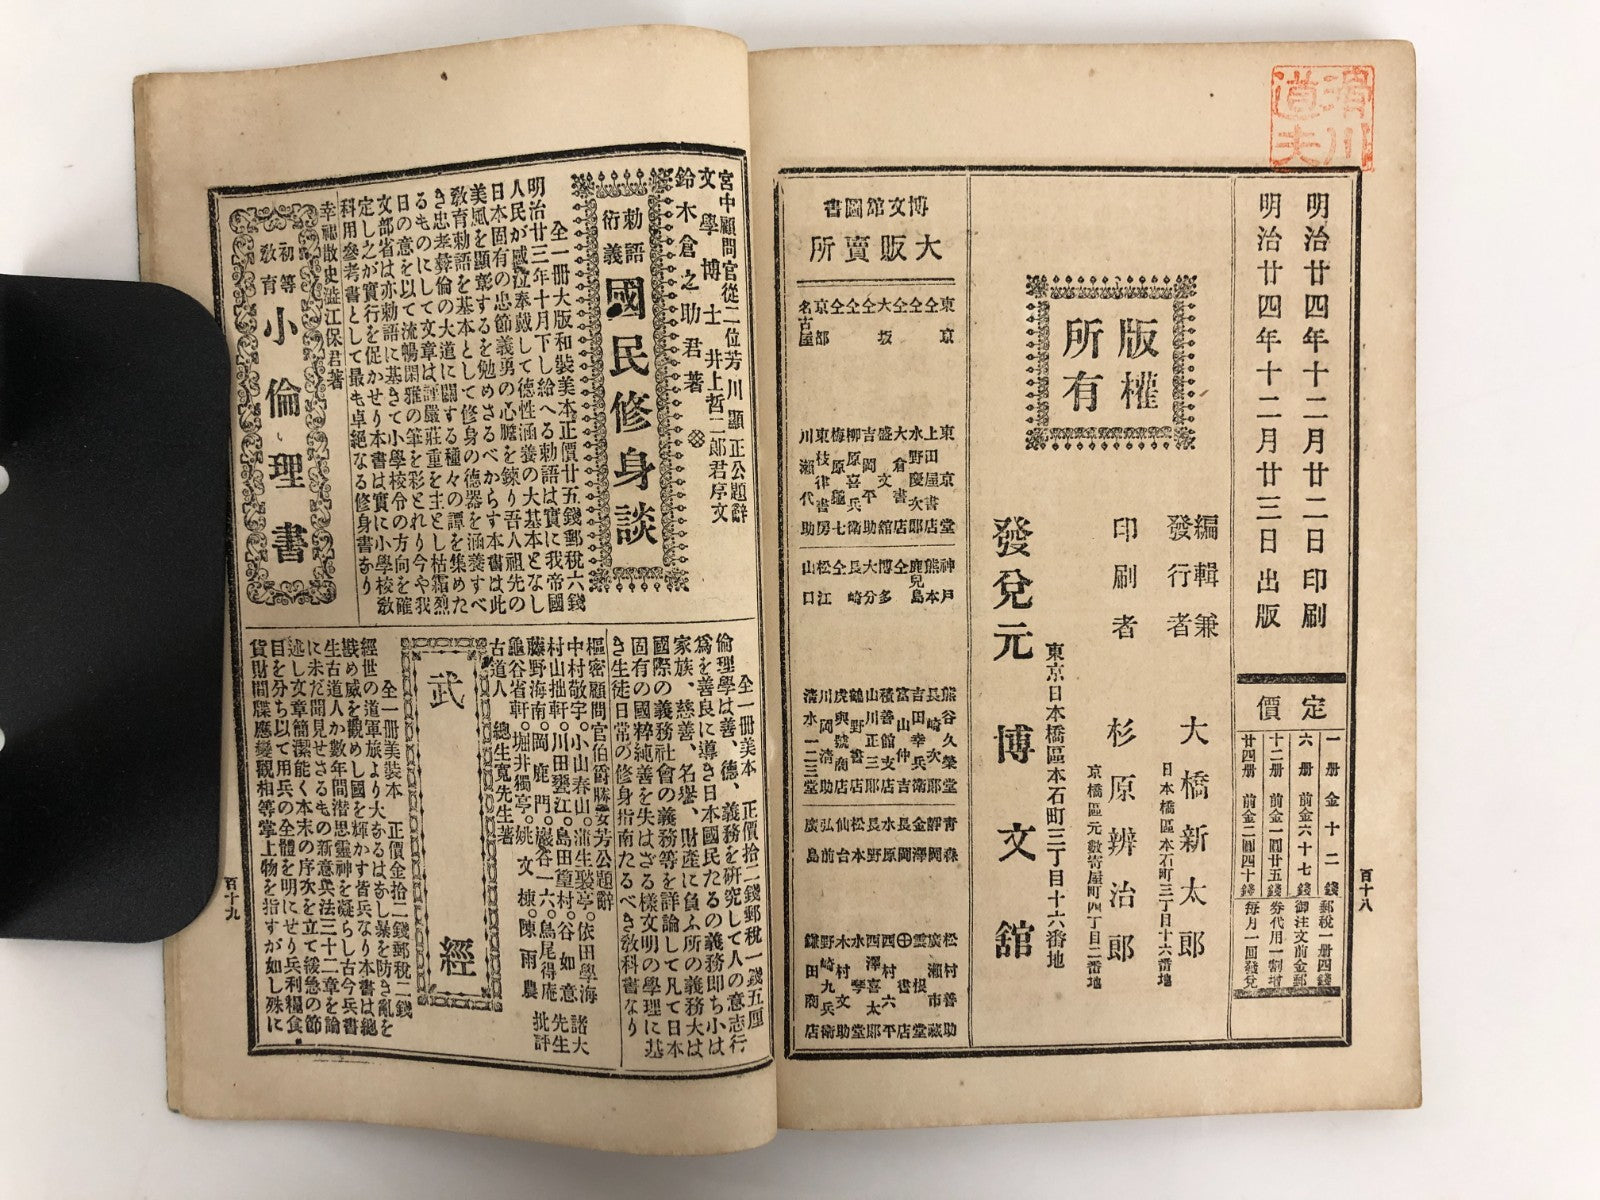 滑川
道夫
明治廿四年十二月廿二日印刷
明治廿四年十二月廿三日出版
定價
一册 金十二錢 郵税一册四錢
六册 前金六十七錢 御注文前金郵
十二册 前金一圓廿五錢 券代用一割增
廿四册 前金二圓四十錢 每月一回發兌
版權
所有
編輯兼
發行者
大橋新太郎
日本橋區本石町三丁目十六番地
印刷者
杉原辨治郎
京橋區元數寄屋町四丁目二番地
東京日本橋區本石町三丁目十六番地
發兌元 博文舘
博文舘圖書
大販賣所
東京 東京堂
仝 上田屋書店
仝 水野慶次郎
仝 大倉書店
大坂 盛文舘
仝 吉岡平助
仝 柳原喜兵衛
仝 梅原龜七
京都 東枝律書房
名古屋 川瀨代助
神戶 熊谷久榮堂
熊本 長崎次郎
鹿兒島 吉田幸兵衛
仝 富山仲吉
博多 積善舘支店
大分 山川正三郎
長崎 鶴野書店
仝 虎與號商店
松江 川岡淸助
山口 淸水一二三堂
青森
靜岡 廣瀨市藏
金澤 雲根堂
長岡
水原 西村六平
長野 西澤喜太郎
松本 水琴堂
仙台 木村文助
弘前 野崎九兵衛
廣島 鎌田商店
百十八
宮中顧問官從二位芳川顯正公題辭
文學博士井上哲二郎君序文
鈴木倉之助君著
勅語
衍義
國民修身談
全一册大版和裝美本正價廿五錢郵税六錢
明治廿三年十月下し給へる勅語は實に我帝國
人民が感泣奉戴して德性涵養の大基本となし
日本固有の忠節義勇の心膽を鍊り吾人祖先の
美風を顯彰するを勉めさるべからす本書は此
敎育勅語を基本として修身の德器を涵養すべ
き忠孝彛倫の大道に關する種々の譚を集めた
るものにして文章は謹嚴莊重を主とし枯霜烈
日の意を以て流暢閑雅の筆を彩とれり今や我
文部省は亦勅語に基きて小學校令の方向を確
定し之が實行を促かせり本書は實に小學校敎
科用參考書として最も卓絕なる修身書なり
幸福散史澁江保君著
初等
敎育
小倫理書
全一册美本 正價拾二錢郵税一錢五厘
倫理學は善、德、義務を研究して人の意志行
爲を善良に導き日本國民たるの義務即ち小は
家族、慈善、名譽、財產に負ふ所の義務大は
國際の義務社會の義務等を詳論して凡て日本
固有の國粹純善を失はざる樣文明の學理に基
き生徒日常の修身指南たるべき敎科書なり
樞密顧問官伯爵勝安芳公題辭
中村敬宇。小山春山。蒲生褧亭。依田學海 諸大
村山拙軒。川田甕江。島田篁村。谷如意 先生
藤野海南。岡鹿門。巖谷一六。鳥尾得庵 批評
龜谷省軒。堀井獨亭。姚文棟。陳雨農
古道人 總生寬先生著
武經
全一册美裝本 正價金拾二錢郵税二錢
經世の道軍旅より大なるはなし暴を防き亂を
戡め威を觀めし國を輝かす皆兵なり本書は總
生古道人か數年間潜思靈神を凝らし古今兵書
に未だ聞見せさるもの新意兵法三十二章を論
述し文章簡潔能く本末の序次を立て緩急の節
目を分ち以て用兵の全體を明にせり兵利糧食
貨財間諜應變觀相等掌上物を指すが如し殊に
百十九